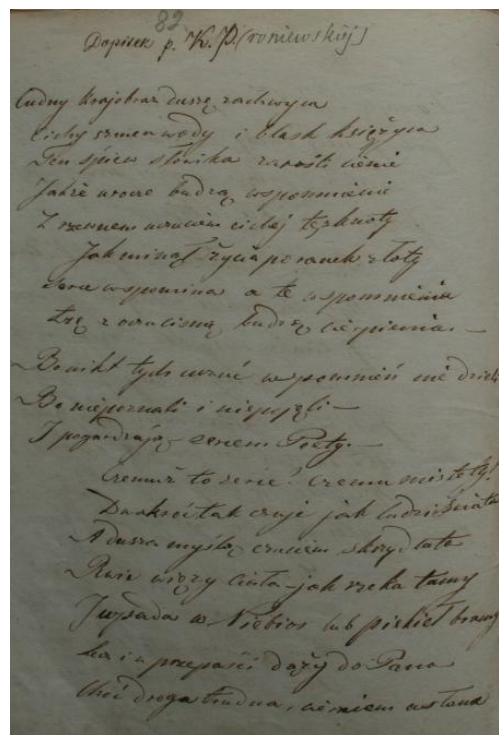 82
Dopisek p. K. P.(roniewskiej)
Cudny krajobraz duszę zachwyca
Cichy szmer wody i blask księżyca
Ten śpiew słowika zarośli cienie
Jakże urocze budzą wspomnienie
Z rzewnem uczuciem cichej tęsknoty
Jak minął życia poranek złoty
Serce wspomina a te wspomnienia
Łzę z budzą cierpienia. —
Bo nikt tych uczuć wspomnień nie dzieli
Bo niepoznali i niepojęli —
I pogardzają sercem Poety. —
Czemuż to serce! czemu niestety!
Dwakroć tak czuje jak ludzie świata
A dusza myślą czuciem skrzydlata
Rwie więzy ciała – jak rzeka tamy
I wpada w Niebios lub piekieł bramy
Lecz i z przepaści dąży do Pana
Choć droga trudna, cierniem usłana